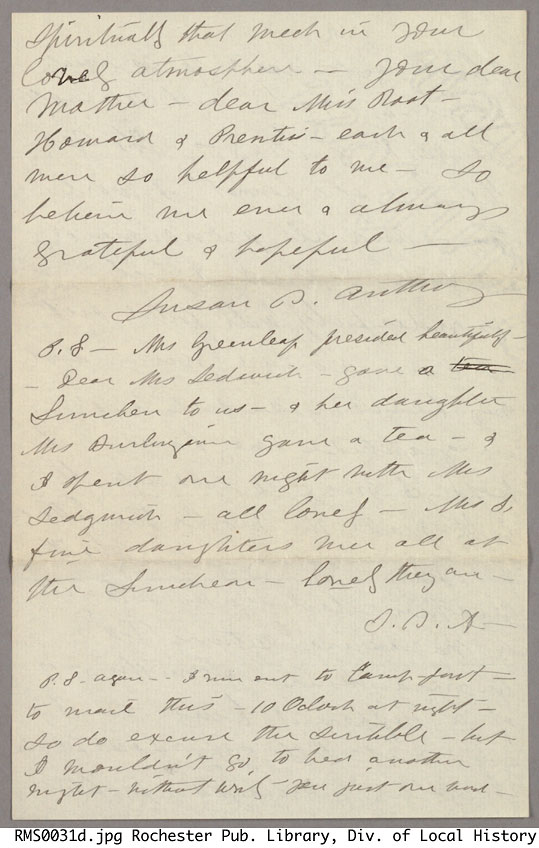 Spiritually that much in your
lovely atmosphere — Your dear
Mother — dear Miss Root —
Howard & Prentis — each & all
were so helpful to me — So
believe me ever & always
grateful & hopeful —
Susan B. Anthony
P.S — Mrs Greenleaf presided beautifully —
— Dear Mrs Sedwick — gave a tea
Luncheon to us — & her daughter
Mrs gave a tea — &
I spent one night with Mrs
Sedgwick — all lovely — Mrs S,
five daughters were all at
the Luncheon — lovely they are —
S. B. A —
P.S. again — I run out to Camp-fort —
to mail this — 10 Oclock at night —
so do excuse the scribble — but
I wouldn't go to bed another
night — without writ you just one word —
RMS0031d.jpg Rochester Pub. Library, Div. of Local History